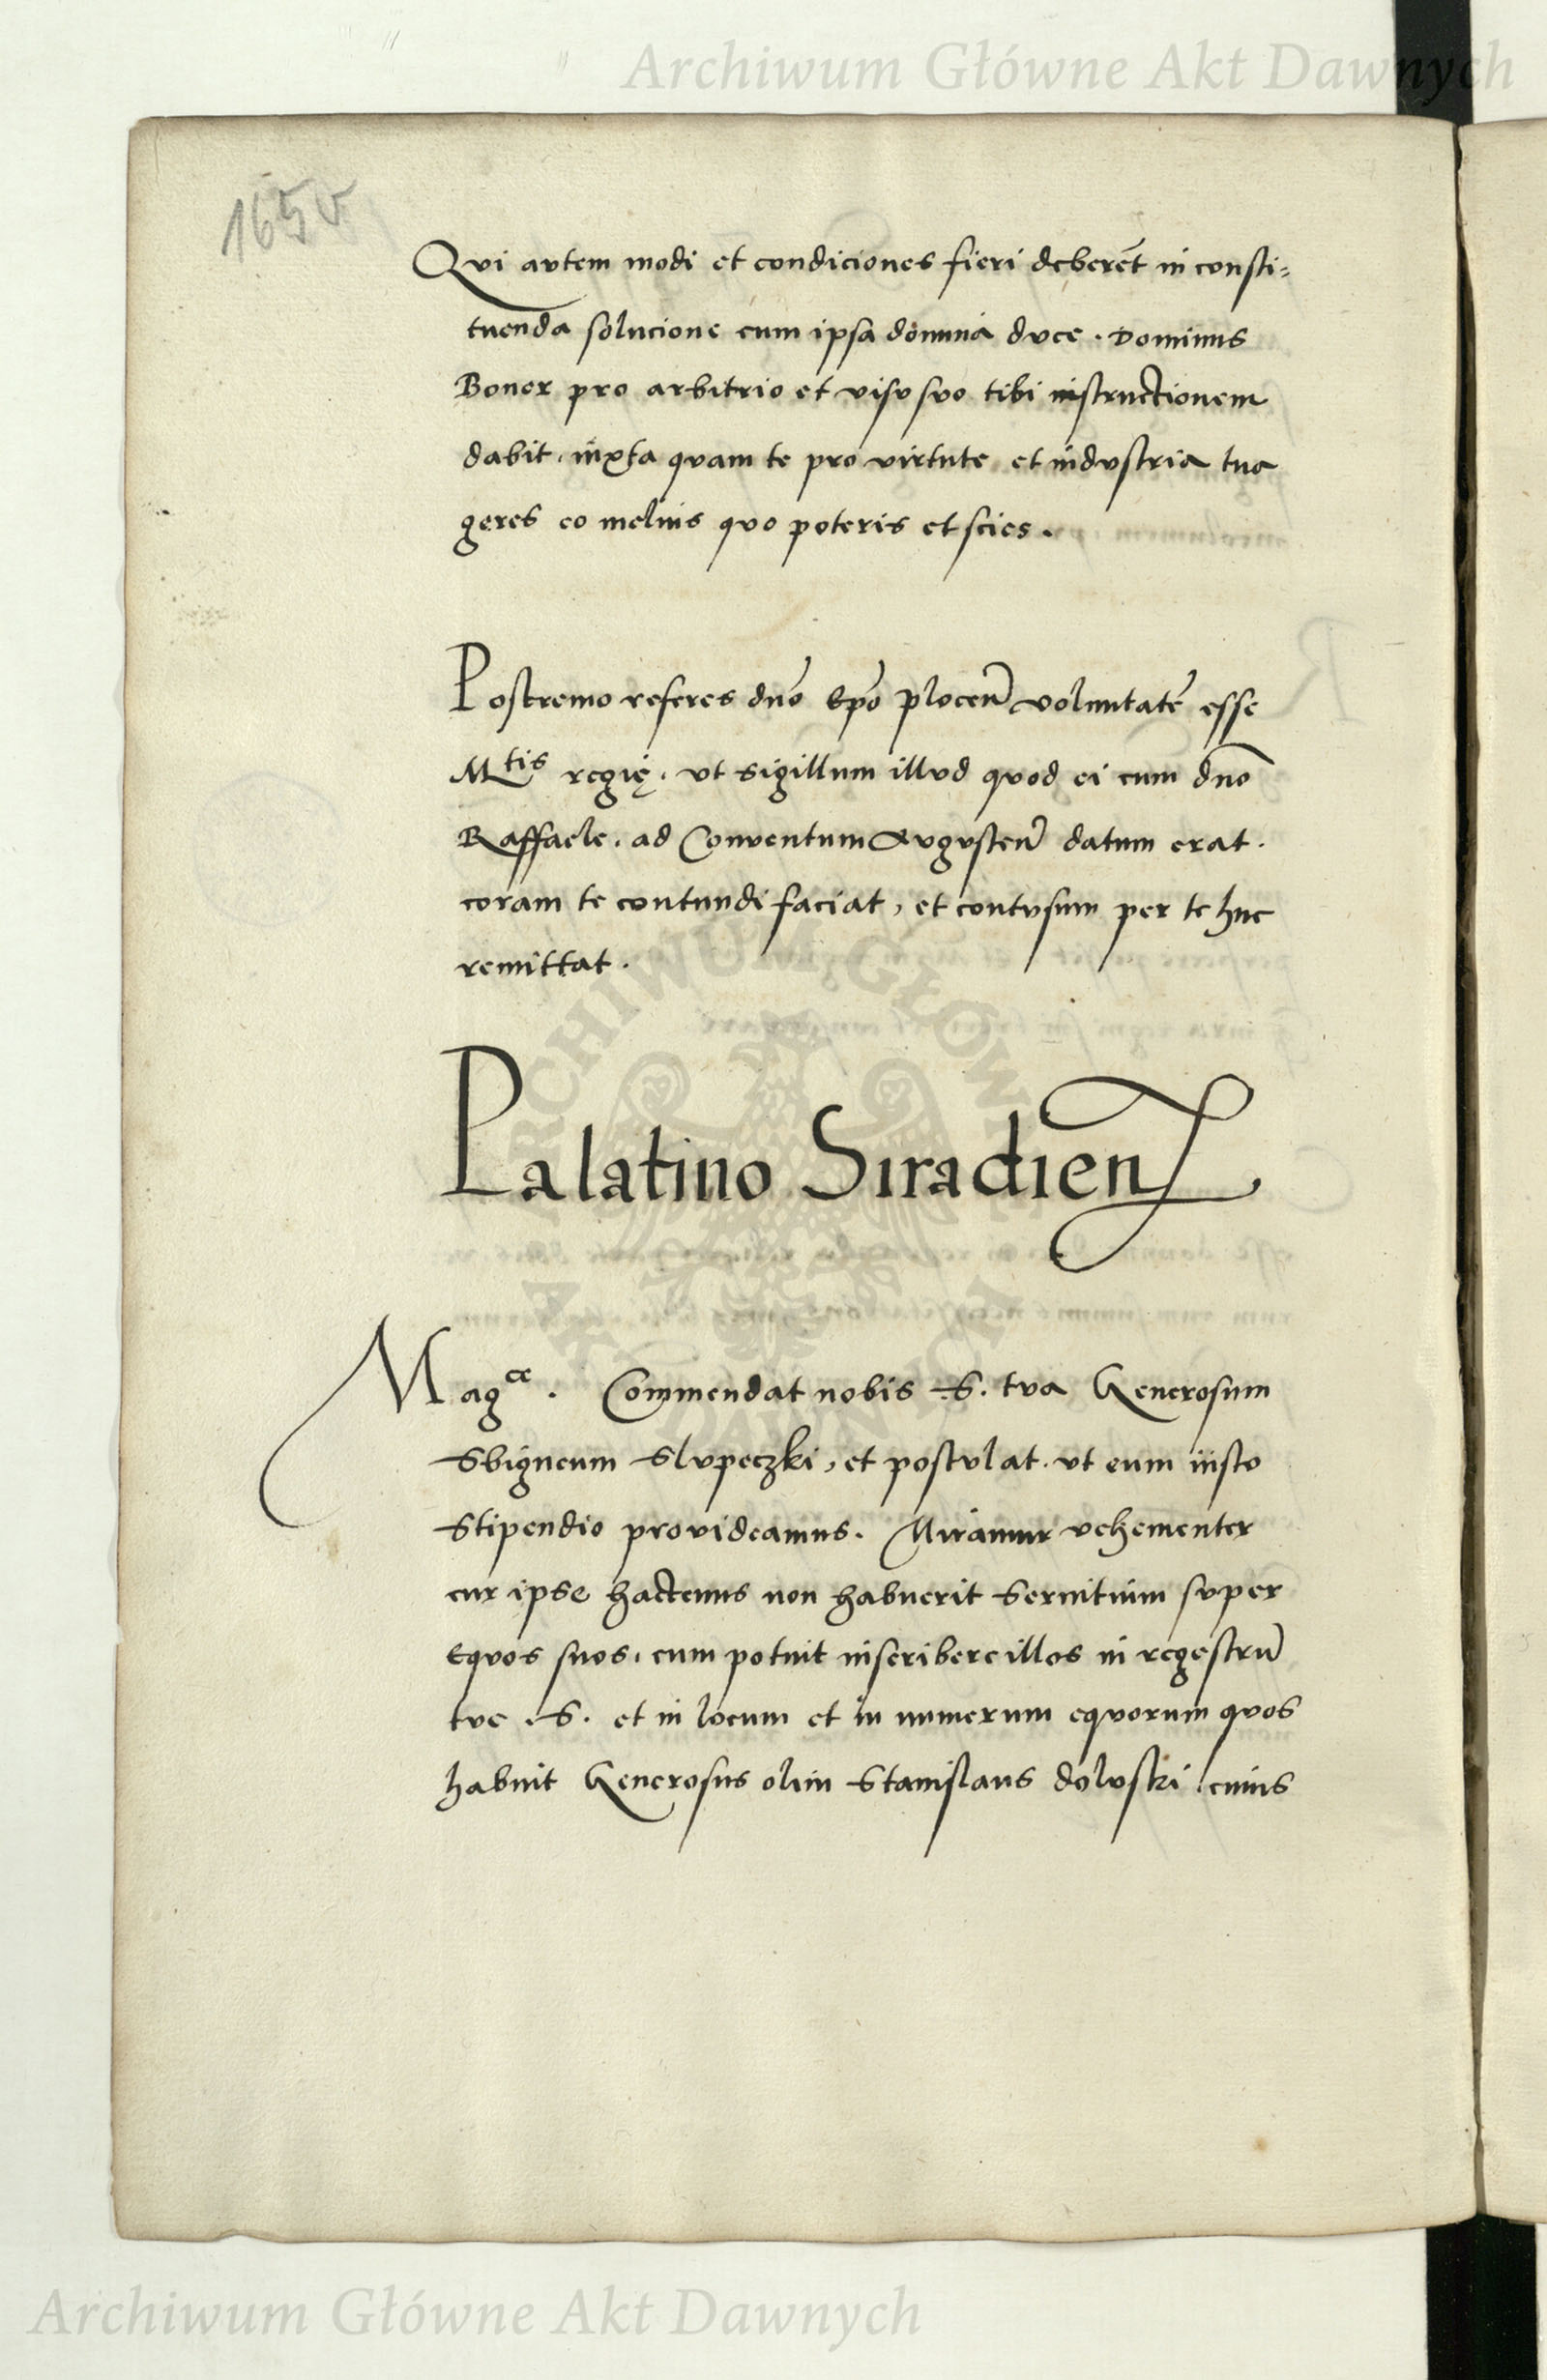 Archiwum Główne Akt Dawnych
165v
Qvi avtem modi et condiciones fieri deberēt in consti=
tuenda solucione cum ipsa domina dvce. Dominus
Boner pro arbitrio et visv svo tibi instructionem
dabit, iuxta qvam te pro virtute et indvstria tua
geres eo melius qvo poteris et scies.
Postremo referes dno Epo plocen voluntatē esse
Mtis regię, vt sigillum illvd qvod ei cum dno
Raffaele, ad Conventum Avgvsten datum erat,
coram te contundi faciat, et contvsum per te huc
remittat.
ARCHIWUM GŁÓWNE AKT DAWNYCH
Palatino Siradien
Magce. Commendat nobis S. tva Generosum
Sbigneum Slvpeczki, et postvlat, vt eum iusto
Stipendio provideamus. Miramur vehementer
cur ipse hactenus non habuerit Seruitium svper
Eqvos suos, cum potuit inscribere illos in regestrū
tve S. et in locum et in numerum eqvorum qvos
habuit Generosus olim Stanislaus dolvski, cuius
Archiwum Główne Akt Dawnych